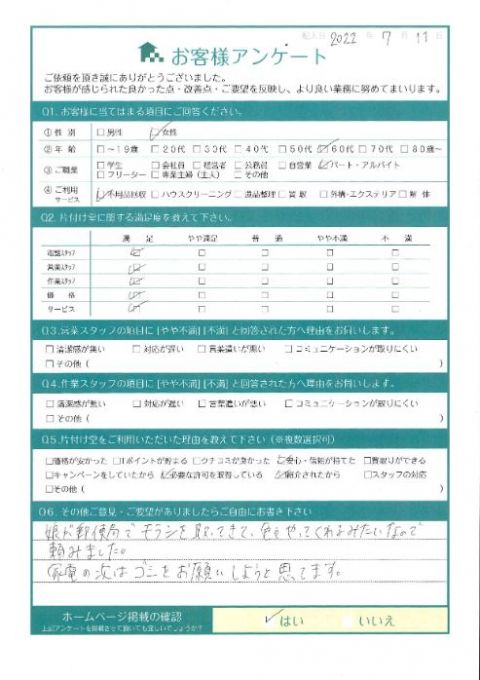 記入日 2022 年 7 月 11 日
お客様アンケート
ご依頼を頂き誠にありがとうございました。
お客様が感じられた良かった点・改善点・ご要望を反映し、より良い業務に努めてまいります。
Q1. お客様に当てはまる項目にご回答ください。
① 性 別 □ 男性 ☑ 女性
② 年 齢 □ ～19歳 □ 20代 □ 30代 □ 40代 □ 50代 ☑ 60代 □ 70代 □ 80歳～
③ ご職業 □ 学生 □ 会社員 □ 経営者 □ 公務員 □ 自営業 ☑ パート・アルバイト
□ フリーター □ 専業主婦（主人） □ その他
④ ご利用サービス ☑ 不用品回収 □ ハウスクリーニング □ 遺品整理 □ 買 取 □ 外構・エクステリア □ 解 体
Q2. 片付け堂に関する満足度を教えて下さい。
満 足 やや満足 普 通 やや不満 不 満
電話スタッフ ☑ □ □ □ □
営業スタッフ ☑ □ □ □ □
作業スタッフ ☑ □ □ □ □
価 格 ☑ □ □ □ □
サービス ☑ □ □ □ □
Q3. 営業スタッフの項目に [やや不満] [不満] と回答された方へ理由をお伺いします。
□ 清潔感が無い □ 対応が遅い □ 言葉遣いが悪い □ コミュニケーションが取りにくい
□ その他 ( )
Q4. 作業スタッフの項目に [やや不満] [不満] と回答された方へ理由をお伺いします。
□ 清潔感が無い □ 対応が遅い □ 言葉遣いが悪い □ コミュニケーションが取りにくい
□ その他 ( )
Q5. 片付け堂をご利用いただいた理由を教えて下さい（※複数選択可）
□ 価格が安かった □ Tポイントが貯まる □ クチコミが良かった ☑ 安心・信頼が持てた □ 買取りができる
□ キャンペーンをしていたから ☑ 必要な許可を取得している ☑ 紹介されたから □ スタッフの対応
□ その他 ( )
Q6. その他ご意見・ご要望がありましたらご自由にお書き下さい
娘が郵便局でチラシを取ってきて、色々やってくれるみたいなので
頼みました。
家電の次はゴミをお願いしようと思ってます。
ホームページ掲載の確認
上記アンケートを掲載させて頂いても宜しいでしょうか？
☑ はい □ いいえ